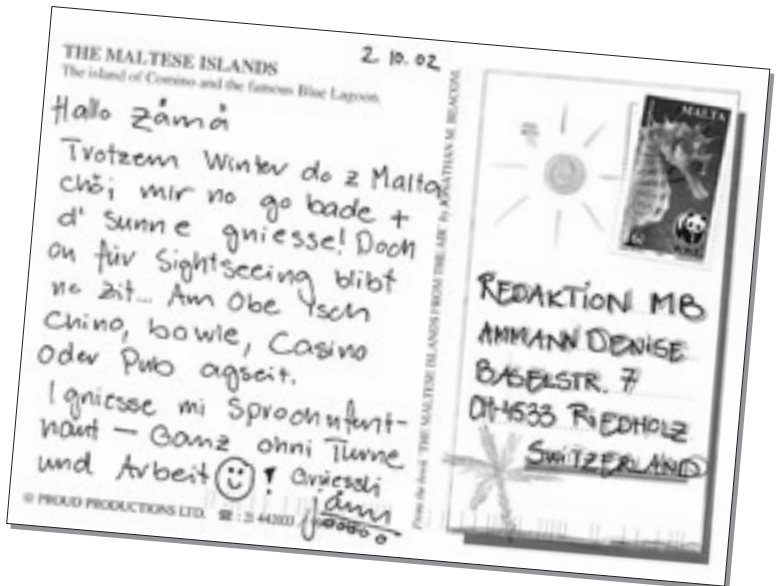 THE MALTESE ISLANDS
The island of Comino and the famous Blue Lagoon.
2. 10. 02
Hallo zämä
Trotzem Winter do z Malta
chöi mir no go bade +
d' Sunne gniesse! Doch
au für Sightseeing blibt
ne Zit... Am Obe isch
Chino, bowle, Casino
oder Pub agseit.
I gniesse mi Sprochufent-
haut — Ganz ohni Turne
und Arbeit ! Griessli
© PROUD PRODUCTIONS LTD. ☎ : 21 442033
From the book 'THE MALTESE ISLANDS FROM THE AIR' by JONATHAN M. BEACOM.
MALTA
REDAKTION MB
AMMANN DENISE
BASELSTR. 7
CH-4533 RIEDHOLZ
SWITZERLAND